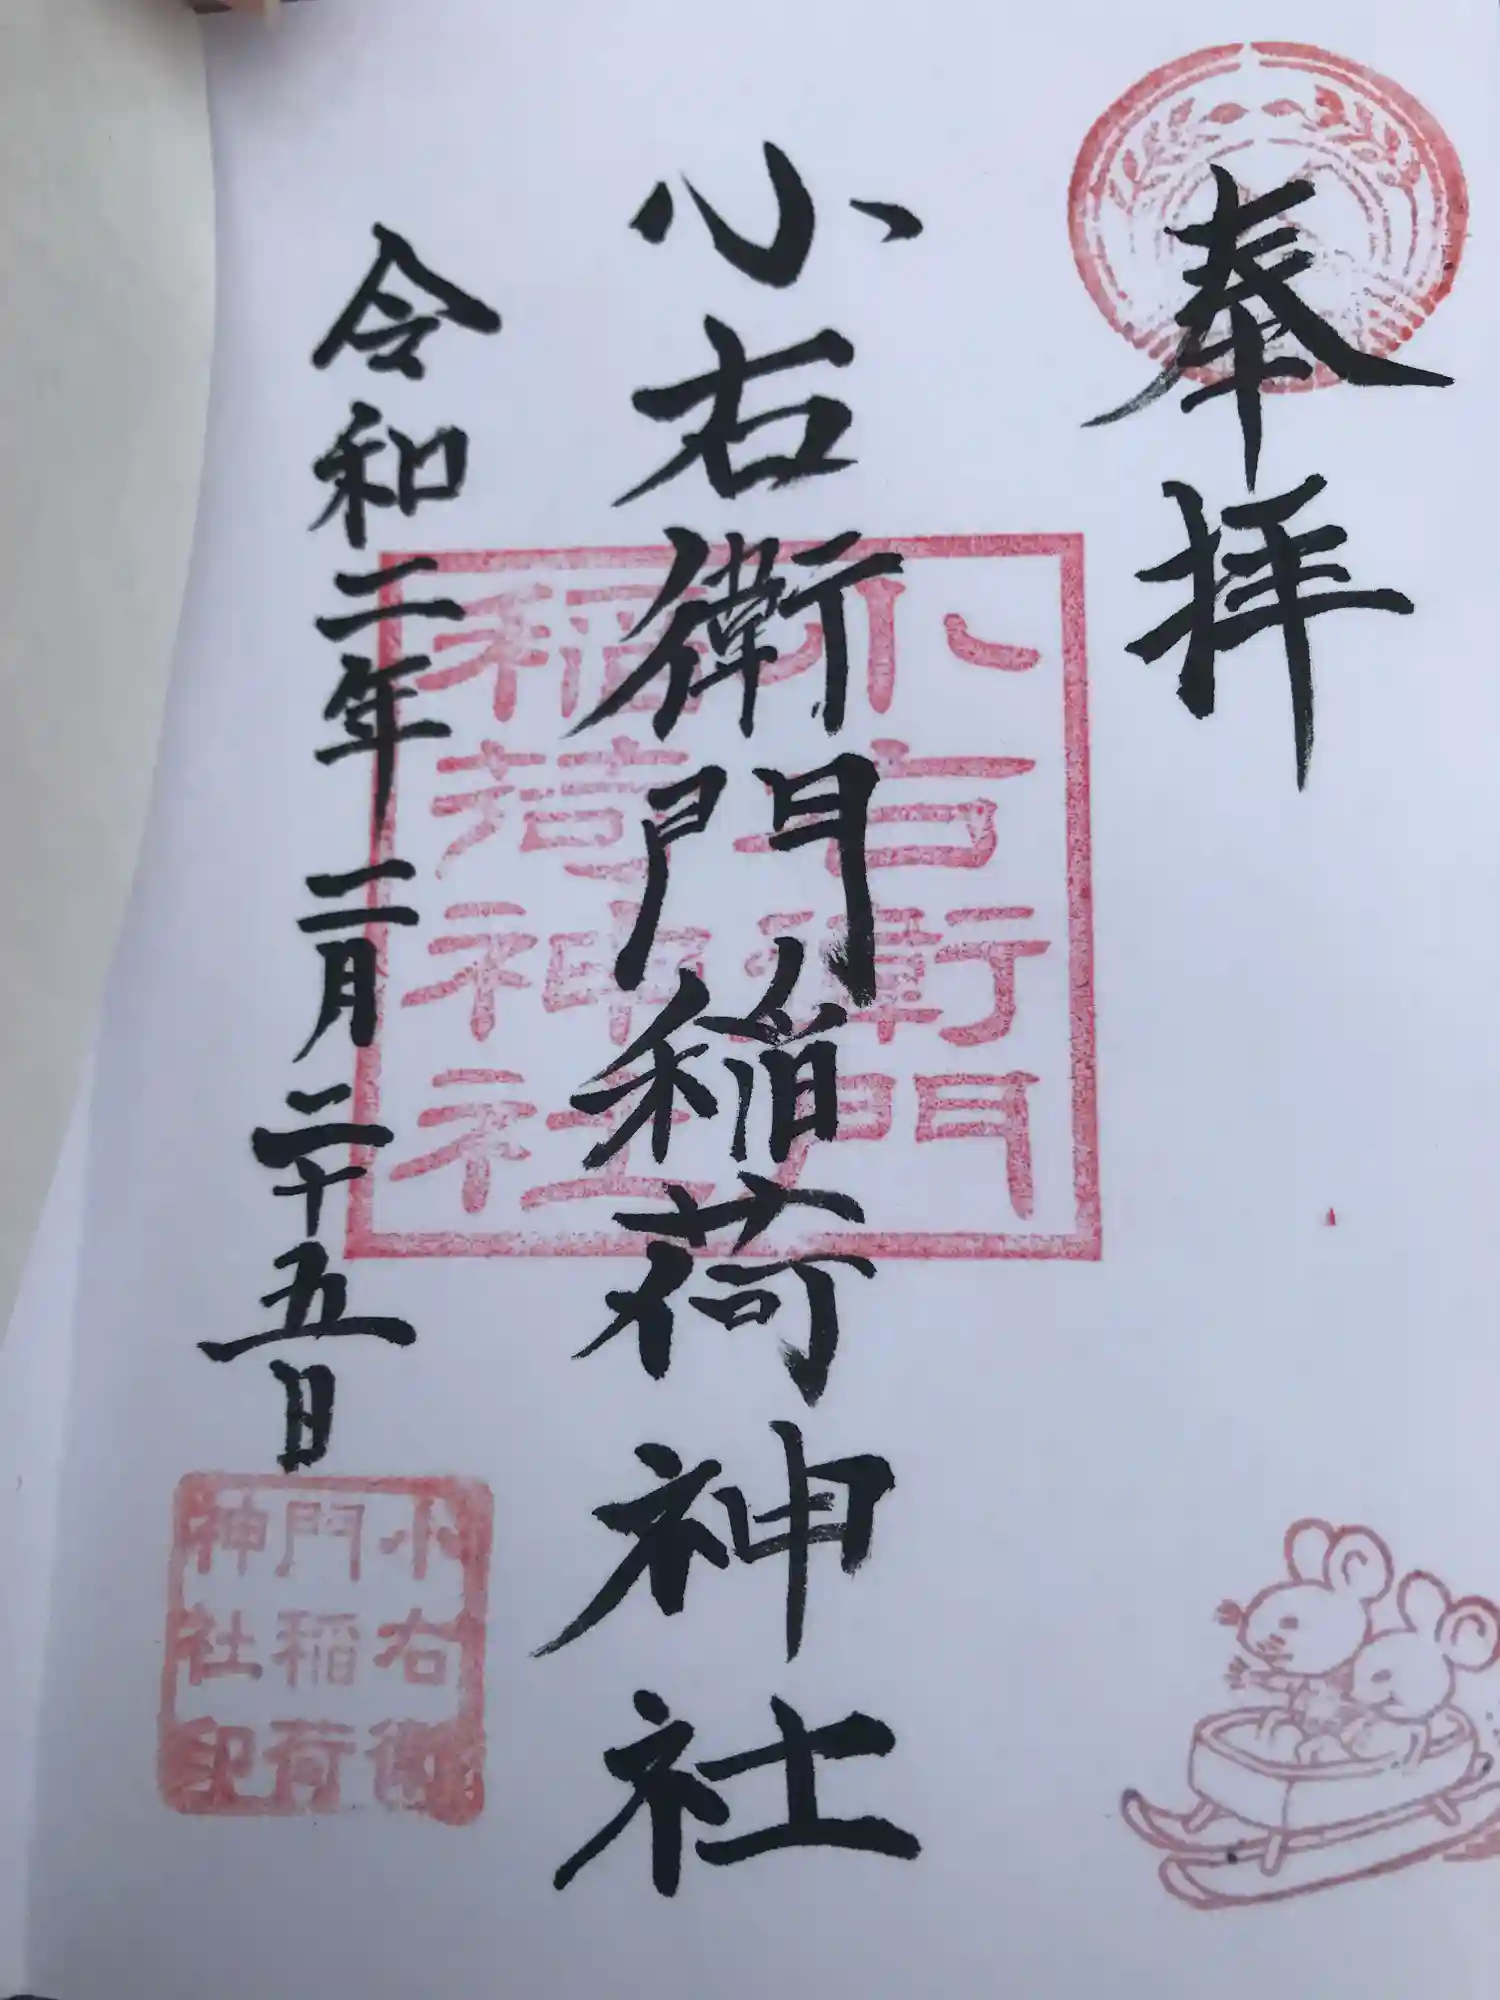 奉拝
小右衛門稲荷神社
小右衛門
稲荷神社
令和二年二月二十五日
小右衛
門稲荷
神社印